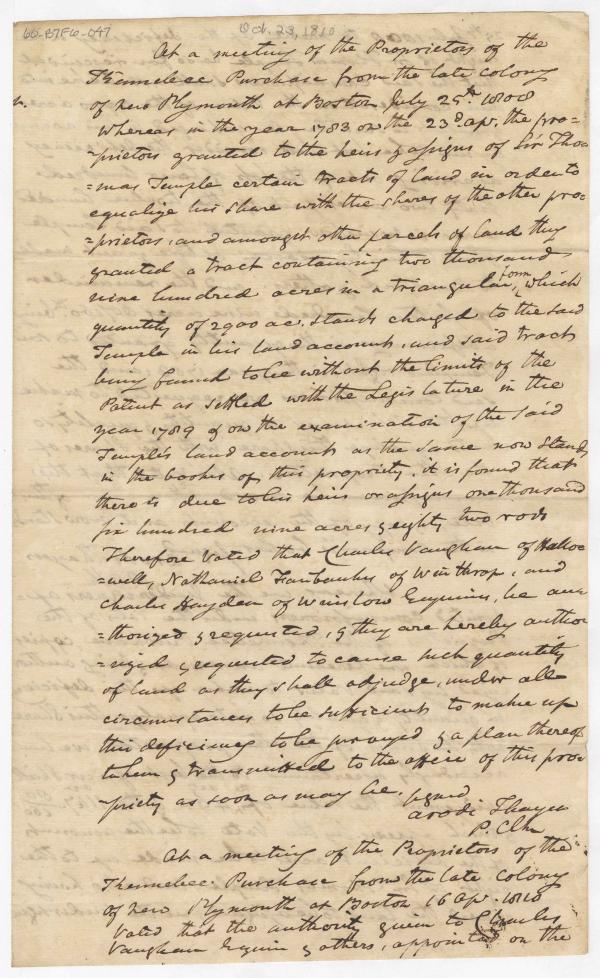 60-B7F6-047
Oct. 23, 1810
At a meeting of the Proprietors of the
Kennebec Purchase from the late colony
of new Plymouth at Boston July 25th 1808
Whereas in the year 1783 on the 23d ap. the pro-
-prietors granted to the heirs & assigns of Sir Tho-
=mas Temple certain tracts of land in order to
equalize his share with the shares of the other pro-
=prietors, and amongst other parcels of land they
granted a tract containing two thousand
nine hundred acres in a triangular form, which
quantity of 2900 ac. stands charged to the said
Temple in his land account, and said tract
being found to be without the limits of the
Patent as settled with the Legislature in the
year 1789 & on the examination of the said
Temple's land account as the same now stands
in the books of this propriety, it is found that
there is due to his heirs or assigns one thousand
six hundred nine acres & eighty two rods
Therefore Voted that Charles Vaughan of Hallo-
=well, Nathaniel Fairbanks of Winthrop, and
Charles Hayden of Winslow Esquires, be au
=thorized & requested, & they are hereby author
=ized & requested to cause such quantity
of land as they shall adjudge, under all
circumstances to be sufficient to make up
this deficiency to be surveyed & a plan thereof
taken & transmitted to the office of this pro-
-priety as soon as may be.
signed
Arodi Thayer
P. Clk
At a meeting of the Proprietors of the
Kennebec Purchase from the late colony
of new Plymouth at Boston 16 ap. 1810
Voted that the authority given to Charles
Vaughan Esquire & others, appointed on the